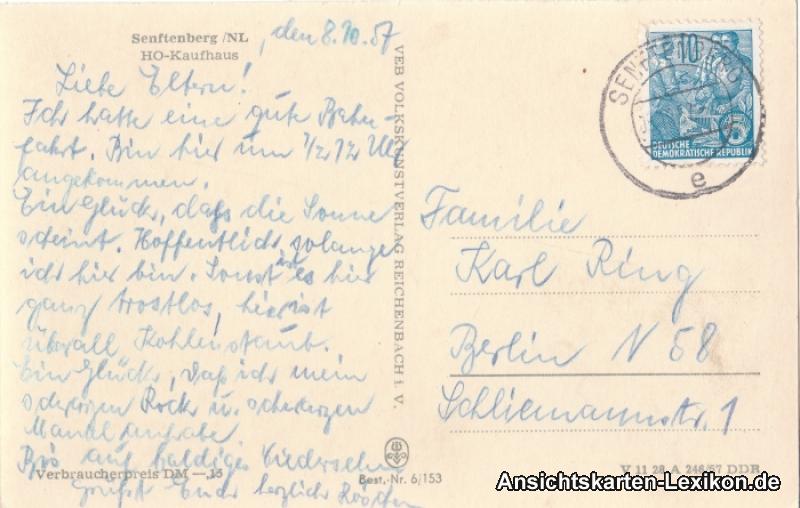 Senftenberg /NL
HO-Kaufhaus
, den 8.10.57
Liebe Eltern!
Ich hatte eine gute Bahn-
fahrt. Bin hier um 1/2 12 Uhr
angekommen.
Ein Glück, daß die Sonne
scheint. Hoffentlich, solange
ich hier bin. Sonst ist es hier
ganz trostlos, hier ist
überall Kohlenstaub.
Ein Glück, daß ich mein
schwarzen Rock u. schwarzen
Mantel anhabe.
Bis auf baldiges Wiedersehn
grüßt Euch herzlich
Verbraucherpreis DM —,15
VEB VOLKSKUNSTVERLAG REICHENBACH i. V.
Best.-Nr. 6/153
SENFTENBERG
e
10
5
DEUTSCHE
DEMOKRATISCHE REPUBLIK
Familie
Karl Ring
Berlin N 58
Schliemannstr. 1
V 11 28 A 246/57 DDR
Ansichtskarten-Lexikon.de